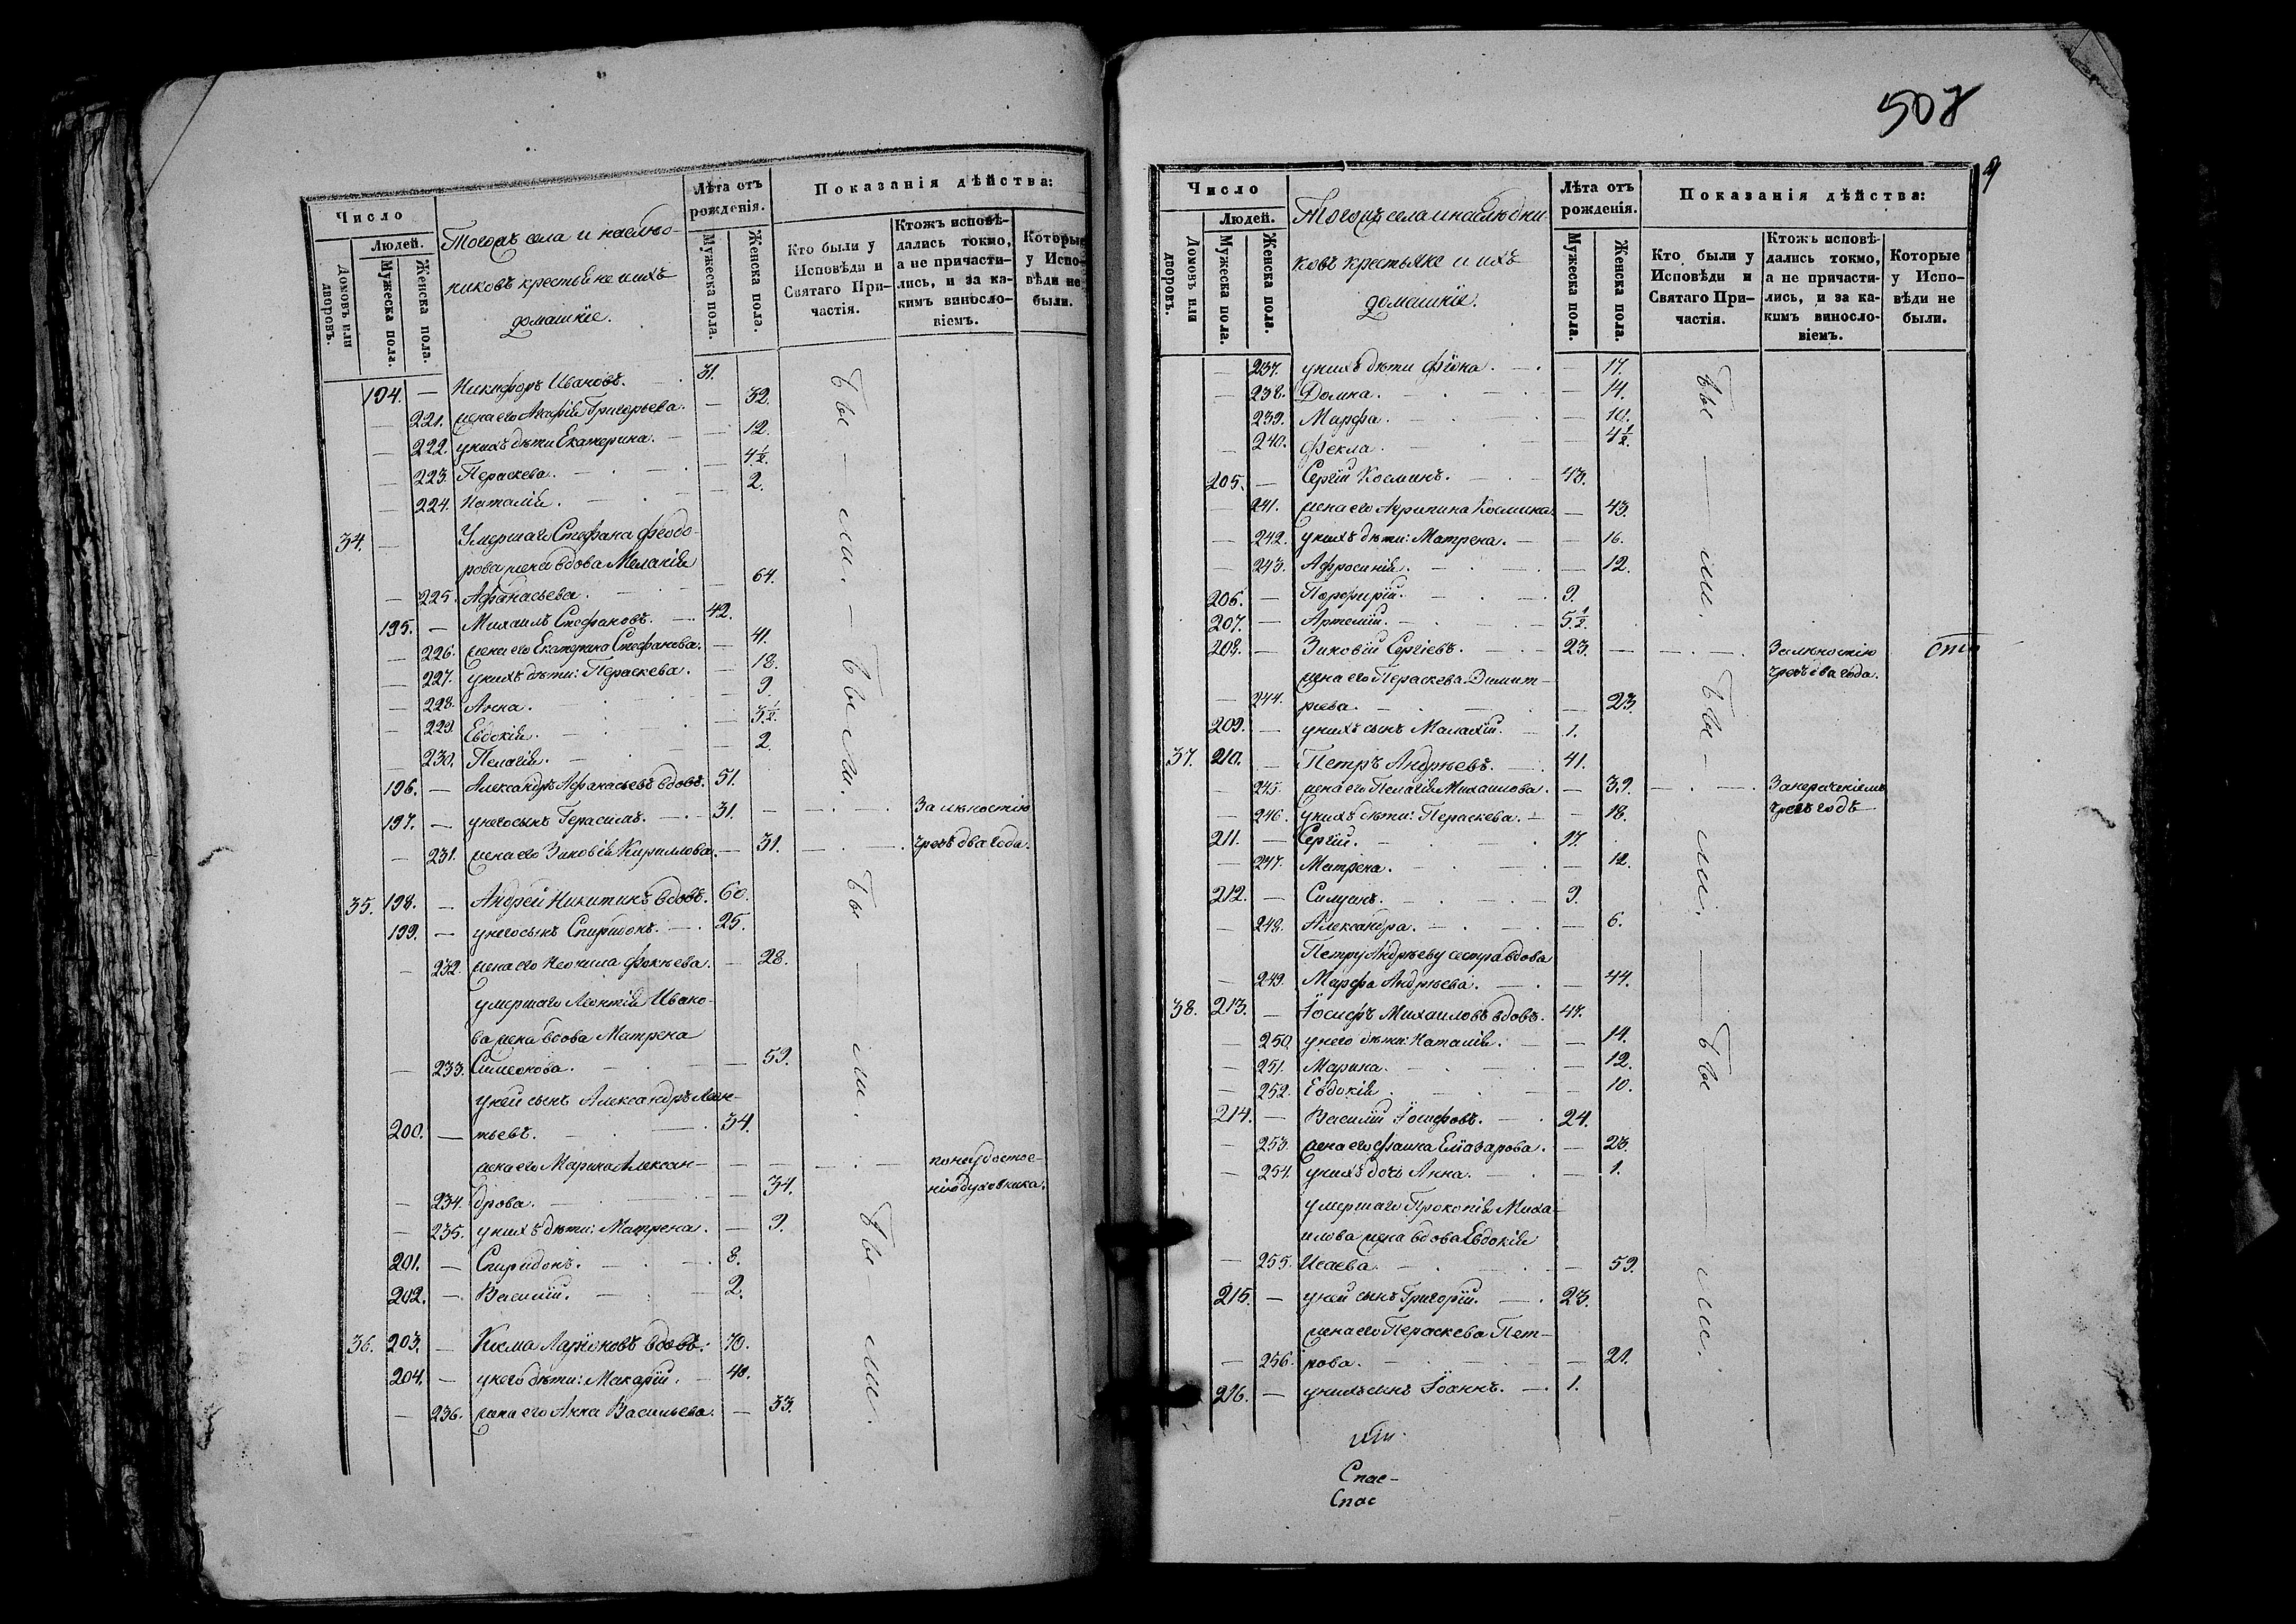 Число
Людей.
Домовъ или дворовъ.
Мужеска пола.
Женска пола.
Тогожъ села и наслѣд-
никовъ крестьяне и ихъ
домашніе.
Лѣта отъ рожденія.
Мужеска пола.
Женска пола.
Показанія дѣйства:
Кто были у Исповѣди и Святаго Причастія.
Ктожъ исповѣдались токмо, а не причастились, и за какимъ винословіемъ.
Которые у Исповѣди не были.
194. — Никифоръ Ивановъ. — 31.
— 221. жена его Агафія Григорьева. — 32.
— 222. у нихъ дѣти Екатерина. — 12.
— 223. Параскева. — 4½.
— 224. Наталія. — 2.
34. — Умершаго Стефана Феодо-
рова жена вдова Меланія
— 225. Афанасьева. — 64.
195. — Михаилъ Стефановъ. — 42.
— 226. жена его Екатерина Стефанова. — 41.
— 227. у нихъ дѣти: Параскева. — 18.
— 228. Анна. — 9.
— 229. Евдокія. — 3½.
— 230. Пелагія. — 2.
196. — Александръ Афанасьевъ вдовъ. 51.
197. — у него сынъ Герасимъ. — 31. — За лѣностію
— 231. жена его Зиновія Кириллова. — 31. — чрезъ два года.
35. 198. — Андрей Никитинъ вдовъ. 60.
199. — у него сынъ Спиридонъ. — 25.
— 232. жена его Неонила Фокѣева. — 28.
умершаго Леонтія Ивано-
ва жена вдова Матрена
— 233. Симеонова. — 59.
у ней сынъ Александръ Леон-
200. — тьевъ. — 34.
жена его Марина Алексан- — по неудостое-
— 234. дрова. — 34. нію духовника.
— 235. у нихъ дѣти: Матрена. — 9.
201. — Спиридонъ. — 8.
202. — Василій. — 2.
36. 203. — Косма Ларіоновъ вдовъ. 70.
204. — у него дѣти: Макарій. — 40.
— 236. жена его Анна Васильева. — 33.
Бы — ли. — Бы — ли. Бы — ли. Бы — ли.
508
Число
Людей.
Домовъ или дворовъ.
Мужеска пола.
Женска пола.
Тогожъ села и наслѣдни-
ковъ крестьяне и ихъ
домашніе.
Лѣта отъ рожденія.
Мужеска пола.
Женска пола.
Показанія дѣйства:
Кто были у Исповѣди и Святаго Причастія.
Ктожъ исповѣдались токмо, а не причастились, и за какимъ винословіемъ.
Которые у Исповѣди не были.
— 237. у нихъ дѣти Фіона. — 17.
— 238. Домна. — 14.
— 239. Марфа. — 10.
— 240. Фекла. — 4½.
205. — Сергій Косминъ. — 43.
— 241. жена его Агрипина Космина. — 43.
— 242. у нихъ дѣти: Матрена. — 16.
— 243. Афросинія. — 12.
206. — Порфирій. — 9.
207. — Артемій. — 5½.
208. — Зиновій Сергіевъ. — 23. — За лѣностію
жена его Параскева Димит- чрезъ два года.
— 244. ріева. — 23.
209. — у нихъ сынъ Малахій. — 1.
37. 210. — Петръ Андреевъ. — 41.
— 245. жена его Пелагія Михаилова. — 39. — За нераченіемъ
— 246. у нихъ дѣти: Параскева. — 18. чрезъ годъ
211. — Сергій. — 17.
— 247. Матрена. — 12.
212. — Симеонъ. — 9.
— 248. Александра. — 6.
Петру Андрееву сестра вдова
— 249. Марфа Андреева. — 44.
38. 213. — Іосифъ Михаиловъ вдовъ. 47.
— 250. у него дѣти: Наталія. — 14.
— 251. Марина. — 12.
— 252. Евдокія. — 10.
214. — Василій Іосифовъ. — 24.
— 253. жена его Фаина Еліазарова. — 23.
— 254. у нихъ дочь Анна. — 1.
умершаго Прокопія Миха-
илова жена вдова Евдокія
— 255. Исаева. — 59.
215. — у ней сынъ Григорій. — 23.
жена его Параскева Пет-
— 256. рова. — 21.
216. — у нихъ сынъ Іоаннъ. — 1.
Бы — ли. Бы — ли. — Бы — ли.
Спас-
Спас